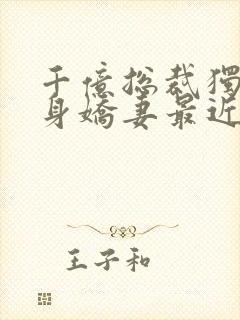 千億總裁獨
身嬌妻最近
王子和